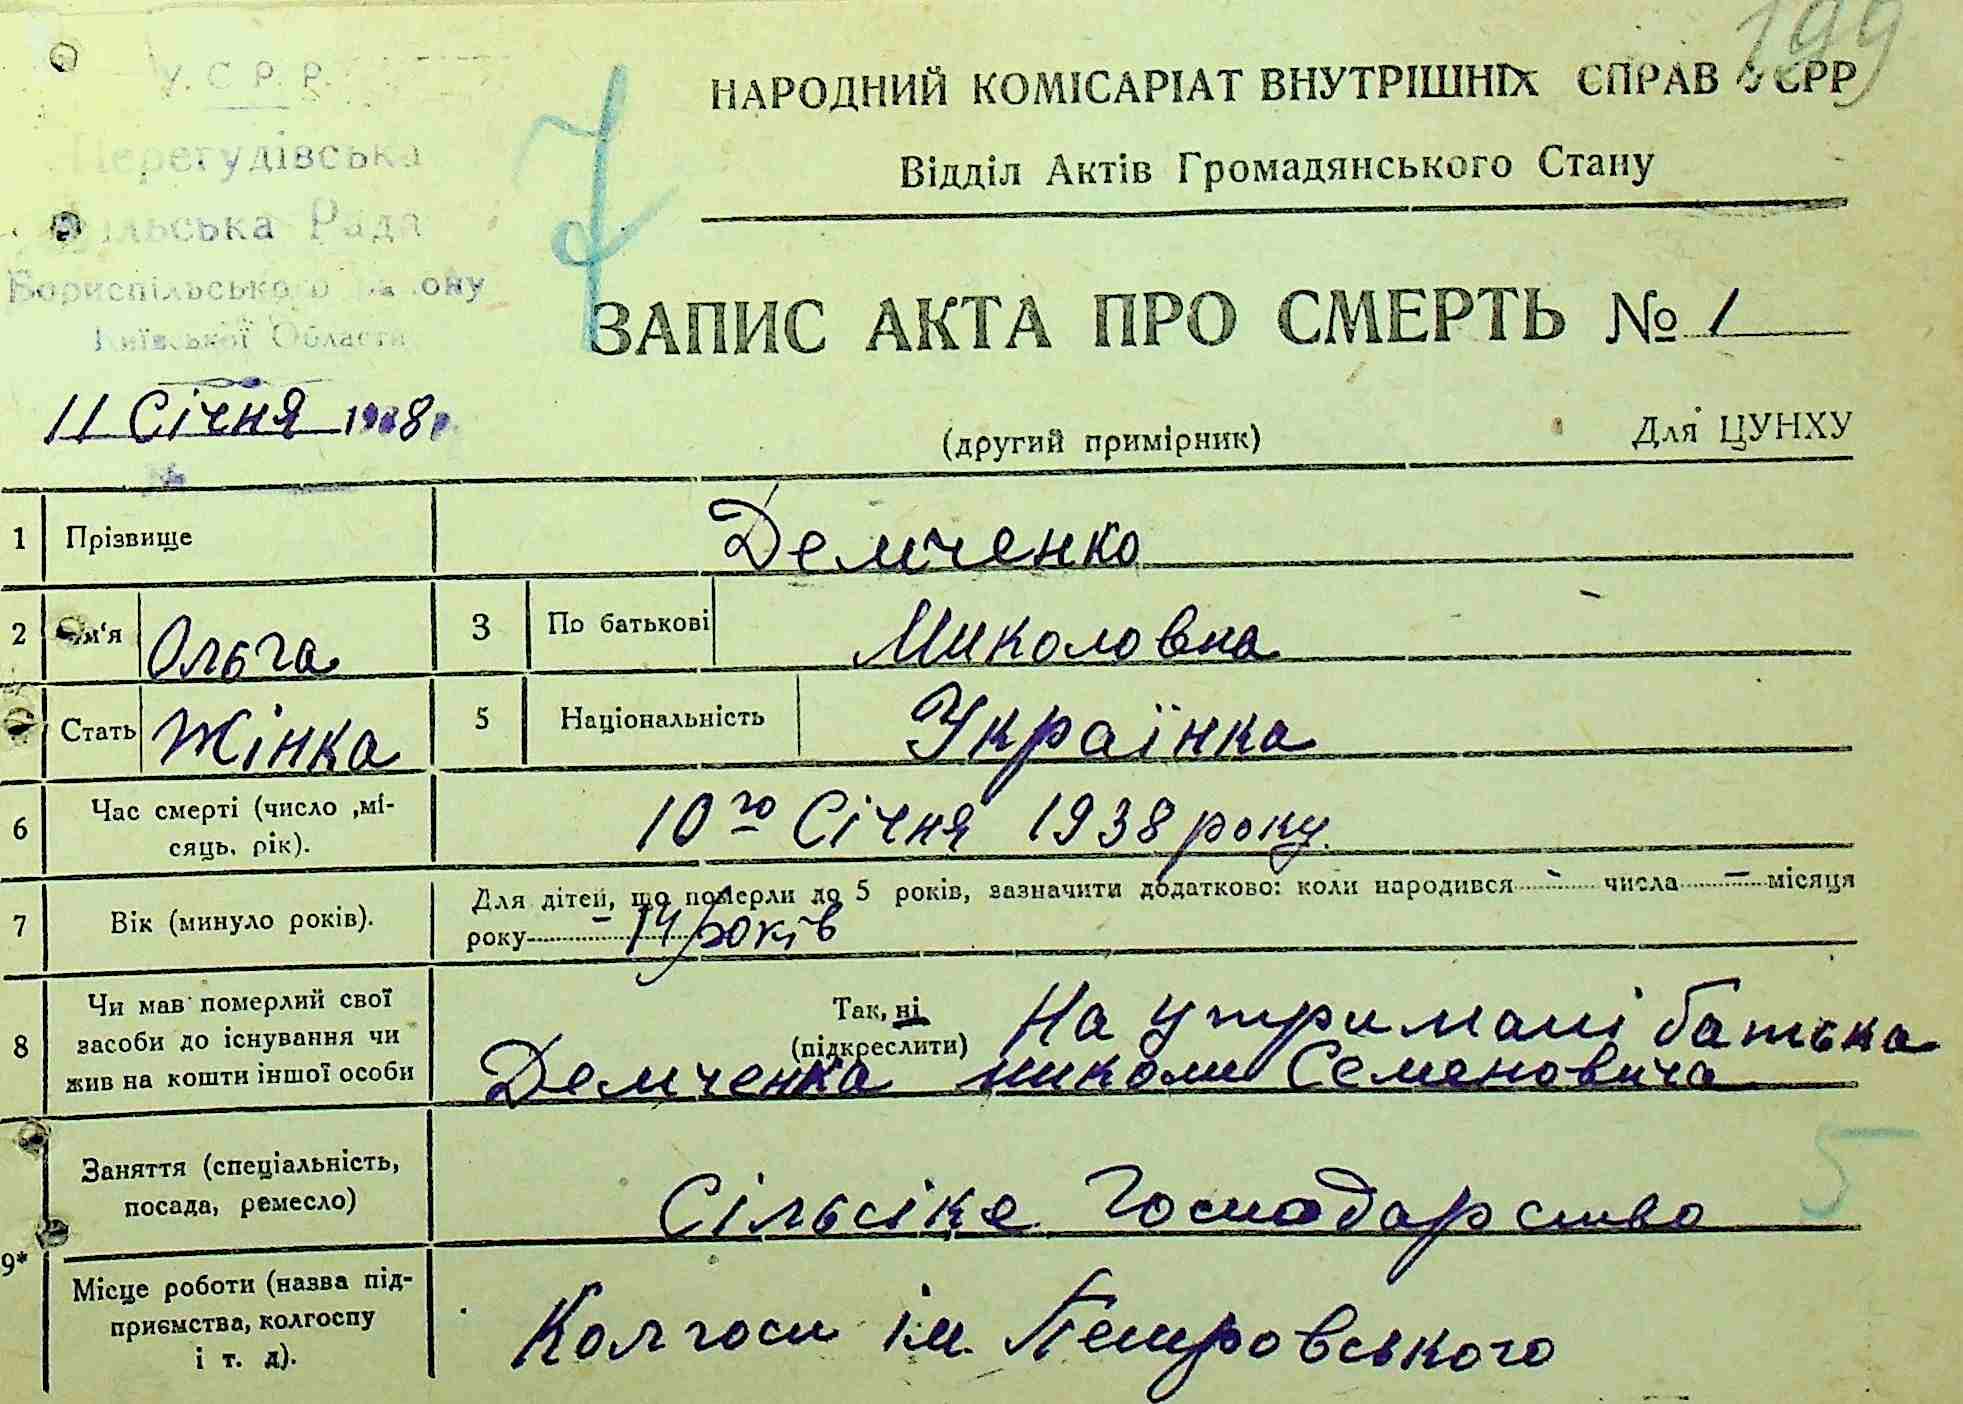 199
У. С. Р. Р.
НАРОДНИЙ КОМІСАРІАТ ВНУТРІШНІХ СПРАВ УСРР
Перегудівська
Відділ Актів Громадянського Стану
Сільська Рада
Бориспільського району
Київської Області
ЗАПИС АКТА ПРО СМЕРТЬ № 1
11 Січня 1938 р.
(другий примірник) Для ЦУНХУ
1 Прізвище Демченко
2 Ім'я Ольга 3 По батькові Миколовна
Стать Жінка 5 Національність Українка
6 Час смерті (число ,мі-
сяць, рік).
10го Січня 1938 року.
7 Вік (минуло років).
Для дітей, що померли до 5 років, зазначити додатково: коли народився - числа - місяця
року - 14 років
8 Чи мав померлий свої
засоби до існування чи
жив на кошти іншої особи
Так, ні
(підкреслити)
На утримані батька
Демченка Миколи Семеновича
Заняття (спеціальність,
посада, ремесло)
Сільсіке Господарство
5
9*
Місце роботи (назва під-
приємства, колгоспу
і т. д).
Колгосп ім. Петровського